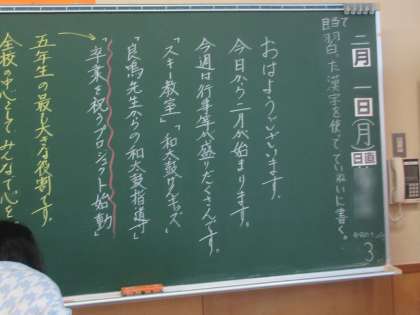 二月一日(月)
日直
習った漢字を使ってていねいに書く。
おはようございます。
今日から二月が始まります。
今週は行事等が盛りだくさんです。
「スキー教室」「和太鼓
「良鳴先生からの和太鼓指導」
「卒業を祝うプロジェクト始動」
五年生の最も大きな役割です。
全校の中心として みんなで心を
3